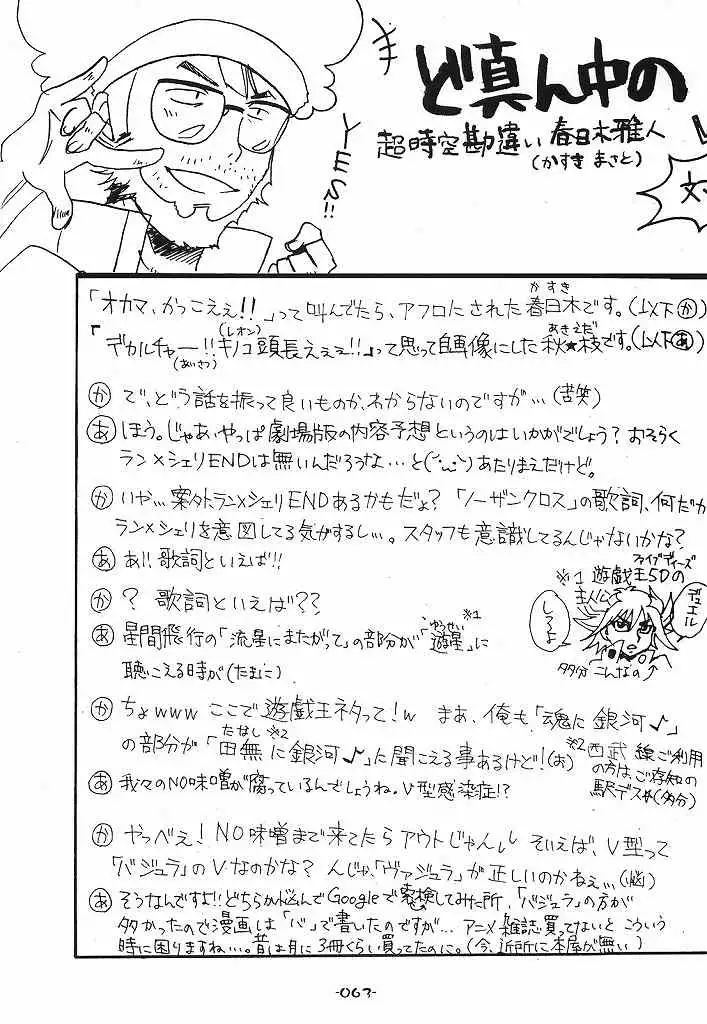 ど真ん中の
超時空勘違い 春日木雅人
(かすき まさと)
YES!!
「オカマ、かっこえぇ!!」って叫んでたら、アフロにされた春日木です。(以下か)
かすき
「デカルチャー!!キノコ頭長えぇぇ!!」って思って自画像にした秋★枝です。(以下あ)
(あいさつ)
(レオン)
あきえだ
か で、どう話を振って良いものか、わからないのですが…(苦笑)
あ ほう。じゃあ、やっぱ劇場版の内容予想というのはいかがでしょう?おそらく
ラン×シェリENDは無いんだろうな…と(´・ω・`)あたりまえだけど。
か いや…案外ラン×シェリENDあるかもだよ?「ノーザンクロス」の歌詞、何だか
ラン×シェリを意図してる気がするし…。スタッフも意識してるんじゃないかな?
あ あ!!歌詞といえば!!
か ? 歌詞といえば??
あ 星間飛行の「流星にまたがって」の部分が「遊星」に
ゆうせい
※1
聴こえる時が(たまに)
※1 遊戯王5Dの
ファイブディーズ
主人公
デュエル
しろよ
多分こんなの
か ちょwww ここで遊戯王ネタって!w まあ、俺も「魂に銀河♪」
の部分が「田無に銀河♪」に聞こえる事あるけど!(お)
たなし ※2
※2 西武線ご利用
の方はご存知の
駅デス(多分)
あ 我々のNO味噌が腐っているんでしょうね。V型感染症!?
か やっべぇ!NO味噌まで来てたらアウトじゃんし そいえば、V型って
「バジュラ」のVなのかな? んじゃ、「ヴァジュラ」が正しいのかねぇ…(悩)
あ そうなんですよ!!どちらか悩んでGoogleで検索してみた所、「バジュラ」の方が
多かったので漫画は「バ」で書いたのですが… アニメ雑誌買ってないとこういう
時に困りますねぃ…。昔は月に3冊くらい買ってたのに。(今、近所に本屋が無い)
-063-